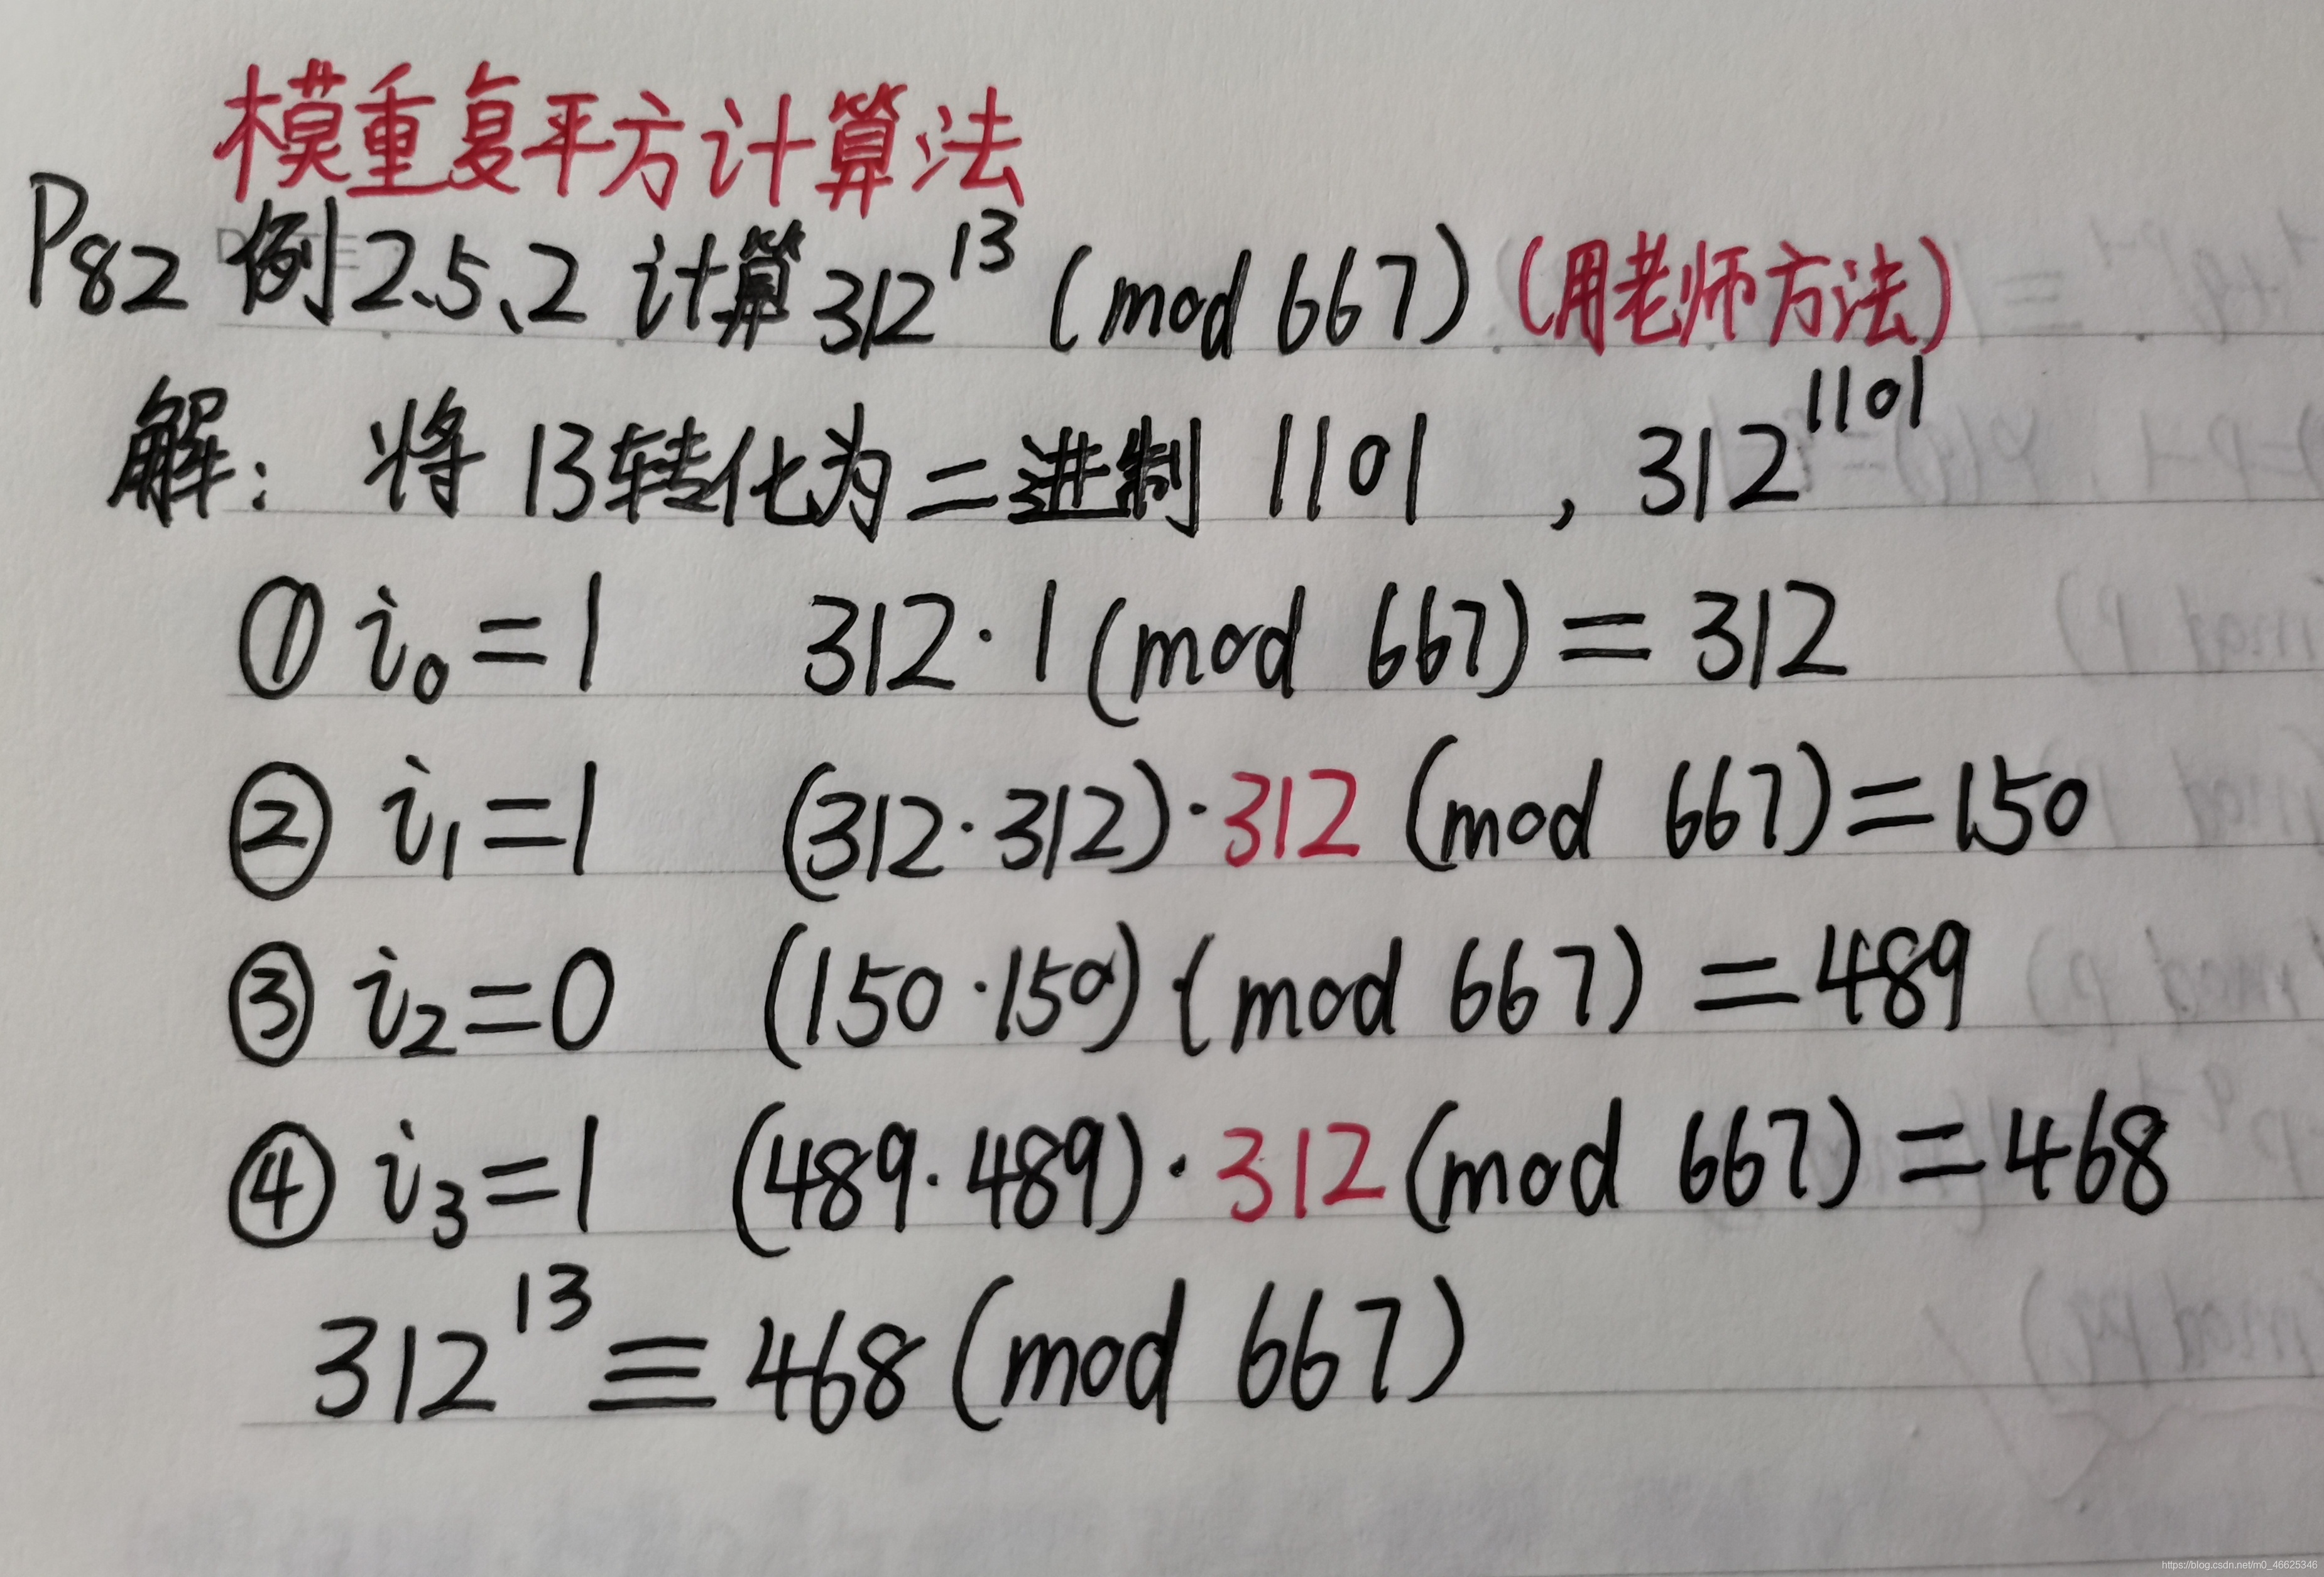 模重复平方计算法
P82 例2.5.2 计算312^13 (mod 667) (用老师方法)
解: 将13转化为二进制 1101 , 312^1101
① i₀=1 312·1(mod 667)=312
② i₁=1 (312·312)·312 (mod 667)=150
③ i₂=0 (150·150)(mod 667)=489
④ i₃=1 (489·489)·312(mod 667)=468
312^13≡468(mod 667)
https://blog.csdn.net/m0_46625346